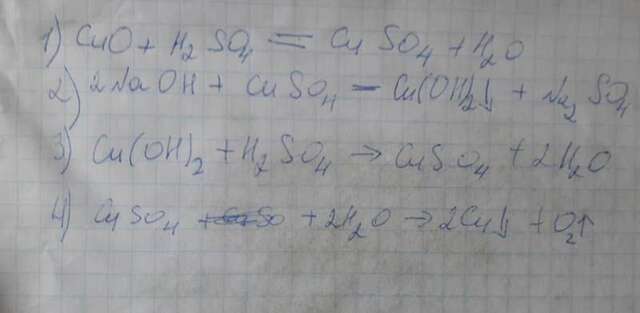 1) CuO + H₂SO₄ = CuSO₄ + H₂O
2) 2NaOH + CuSO₄ = Cu(OH)₂↓ + Na₂SO₄
3) Cu(OH)₂ + H₂SO₄ → CuSO₄ + 2H₂O
4) CuSO₄ + 2H₂O → 2Cu↓ + O₂↑